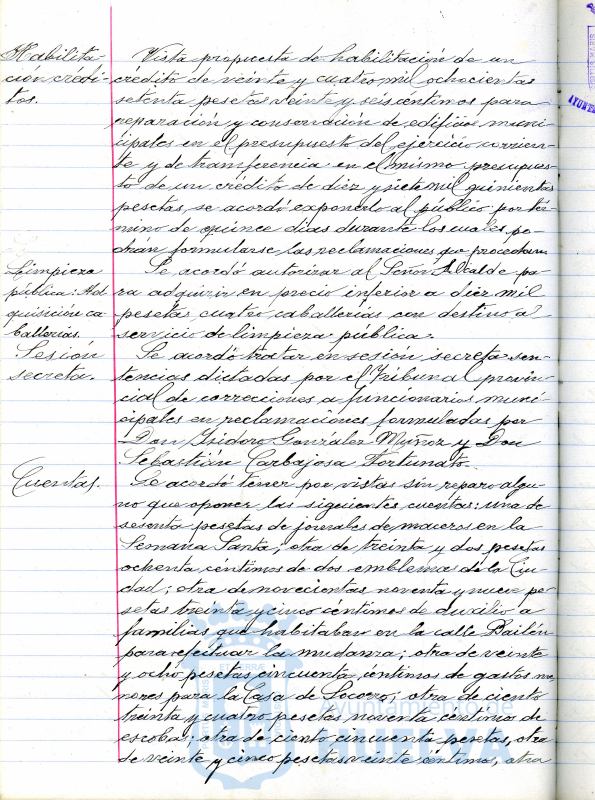 Habilita-
ción crédi-
tos.
Vista propuesta de habilitación de un
crédito de veinte y cuatro mil ochocientas
setenta pesetas veinte y seis centimos para
reparación y conservación de edificios muni-
cipales en el presupuesto del ejercicio corrien-
te y de transferencia en el mismo presupues-
to de un crédito de diez y siete mil quinientas
pesetas, se acordó exponerlo al público por tér-
mino de quince dias durante los cuales po-
drán formularse las reclamaciones que procedan
Limpieza
pública: Ad-
quisición ca-
ballerias.
Se acordó autorizar al Señor Alcalde pa-
ra adquirir en precio inferior a diez mil
pesetas cuatro caballerias con destino al
servicio de limpieza pública.
Sesión
secreta.
Se acordó tratar en sesión secreta sen-
tencias dictadas por el Tribunal provin-
cial de correcciones a funcionarios muni-
cipales en reclamaciones formuladas por
Don Isidoro Gonzalez Muñoz y Don
Sebastián Carbajosa Fortunato.
Cuentas.
Se acordó tener por vistas sin reparo algu-
no que oponer las siguientes cuentas: una de
sesenta pesetas de jornales de maceros en la
Semana Santa; otra de treinta y dos pesetas
ochenta céntimos de dos emblemas de la Ciu-
dad; otra de novecientas noventa y nueve pe-
setas treinta y cinco céntimos de auxilio a
familias que habitaban en la calle Bailén
para efectuar la mudanza; otra de veinte
y ocho pesetas cincuenta céntimos de gastos me-
nores para la Casa de Socorro; otra de ciento
treinta y cuatro pesetas noventa céntimos de
escobas; otra de ciento cincuenta pesetas, otra
de veinte y cinco pesetas veinte céntimos, otra
Ayuntamiento de
HUELVA